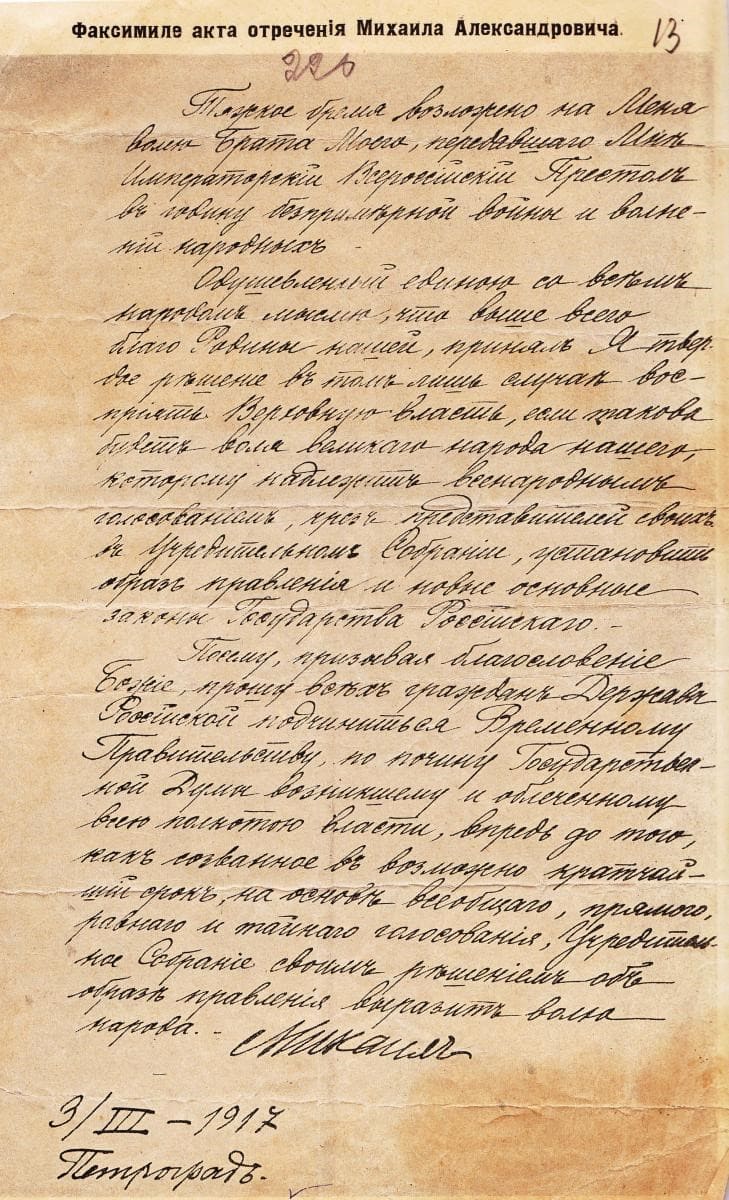 Факсимиле акта отреченія Михаила Александровича.
13
22б
Тяжкое бремя возложено на Меня
волею Брата Моего, передавшаго Мнѣ
Императорскій Всероссійскій Престолъ
въ годину безпримѣрной войны и волне-
ній народныхъ.
Одушевленный единою со всѣмъ
народомъ мыслію, что выше всего
благо Родины нашей, принялъ Я твер-
дое рѣшеніе въ томъ лишь случаѣ вос-
пріять Верховную власть, если такова
будетъ воля великаго народа нашего,
которому надлежитъ всенароднымъ
голосованіемъ, чрезъ представителей своихъ
въ Учредительномъ Собраніи, установить
образъ правленія и новые основные
законы Государства Россійскаго. –
Посему, призывая благословеніе
Божіе, прошу всѣхъ гражданъ Державы
Россійской подчиниться Временному
Правительству, по почину Государствен-
ной Думы возникшему и облеченному
всею полнотою власти, впредь до того,
какъ созванное въ возможно кратчай-
шій срокъ, на основѣ всеобщаго, прямого,
равнаго и тайнаго голосованія, Учредитель-
ное Собраніе своимъ рѣшеніемъ объ
образѣ правленія выразитъ волю
народа. –
Михаилъ
3/III – 1917
Петроградъ.